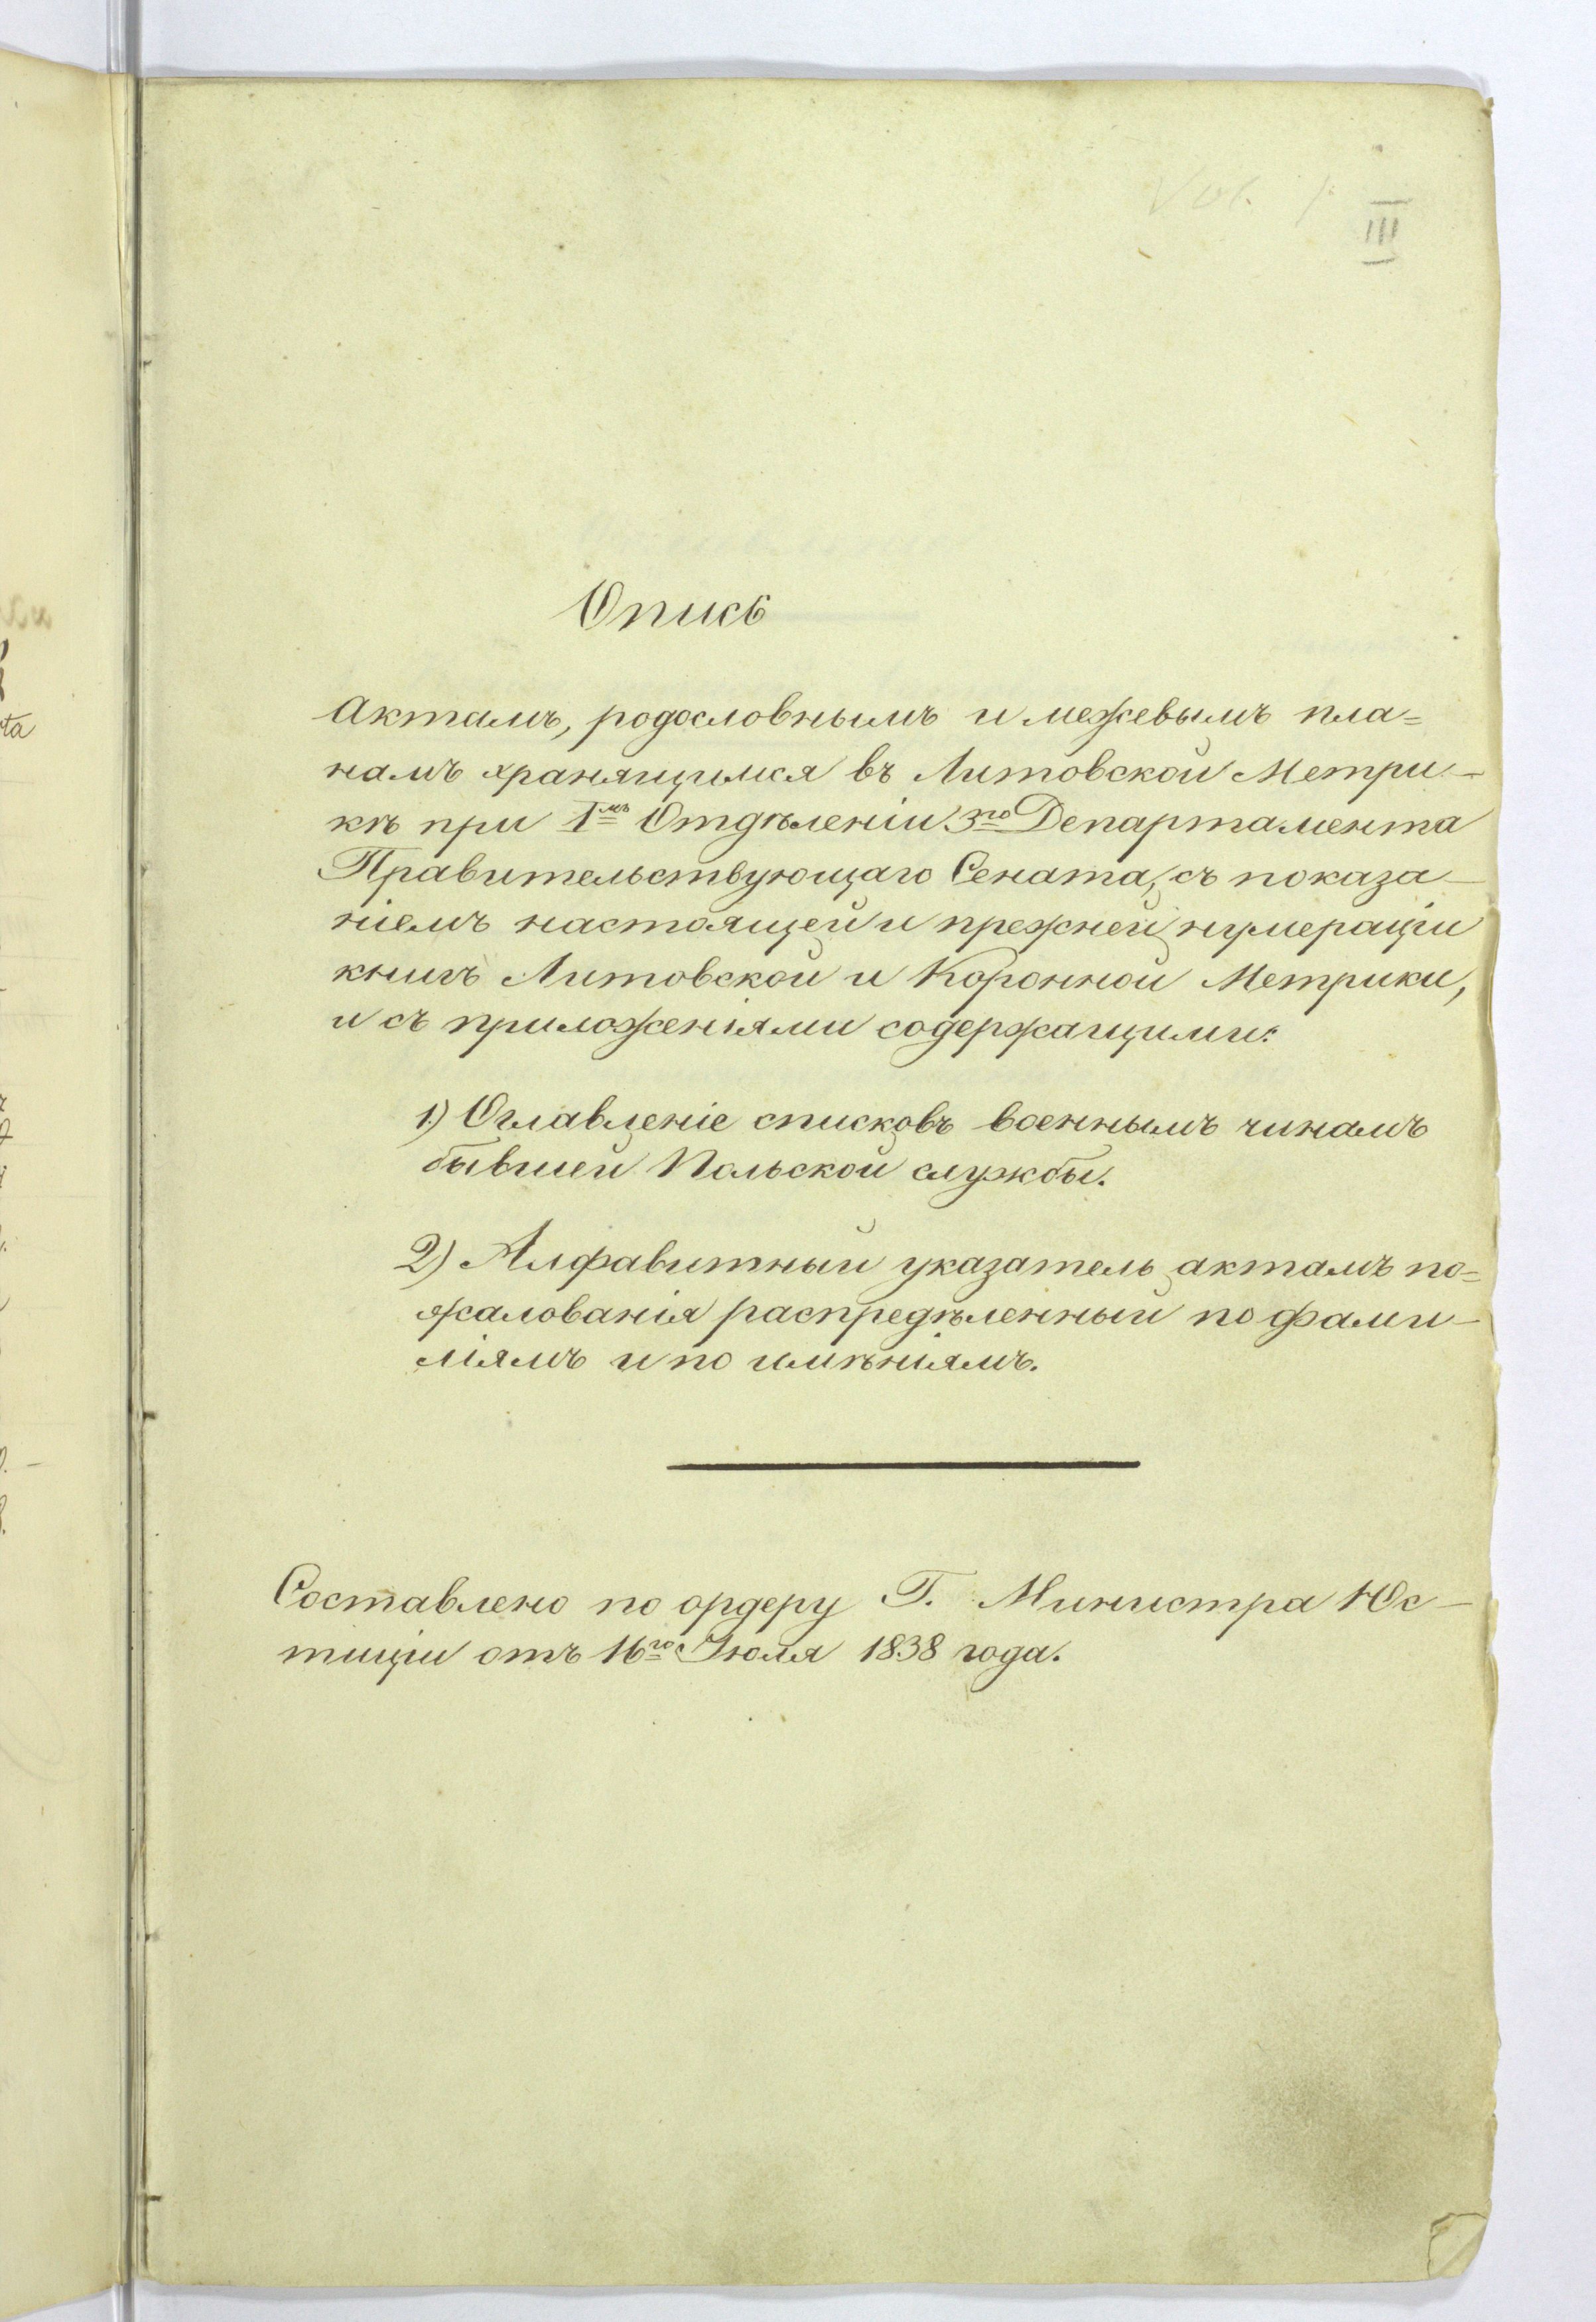 III
Опись
Актамъ, родословнымъ и межевымъ пла=
намъ хранящимся въ Литовской Метри-
кѣ при 1мъ Отдѣленіи 3го Департамента
Правительствующаго Сената, съ показа-
ніемъ настоящей и прежней нумераціи
книгъ Литовской и Коронной Метрики,
и съ приложеніями содержащими:
1.) Оглавленіе списковъ военнымъ чинамъ
бывшей Польской службы.
2) Алфавитный указатель актамъ по=
жалованія распредѣленный по фами-
ліямъ и по имѣніямъ.
Составлено по ордеру Г. Министра Юс-
тиціи отъ 16го Іюля 1838 года.